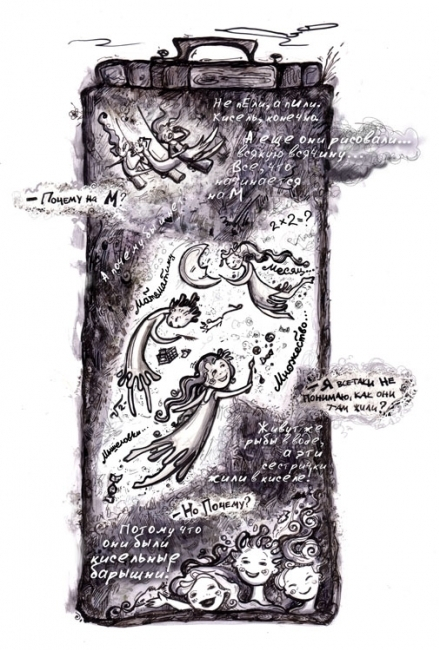 Не пЕли, а пили.
Кисель, конечно.
А еще они рисовали...
всякую всячину...
Все, что
начинается
на М
- Почему на М?
А почему бы и нет
2x2=?
Месяц...
Математику
Множество...
Мышеловку
- Я всетаки не
понимаю, как они
там жили?
Живут же
рыбы в воде,
а эти
сестрички
жили в киселе.
- Но Почему?
Потому что
они были
кисельные
барышни.